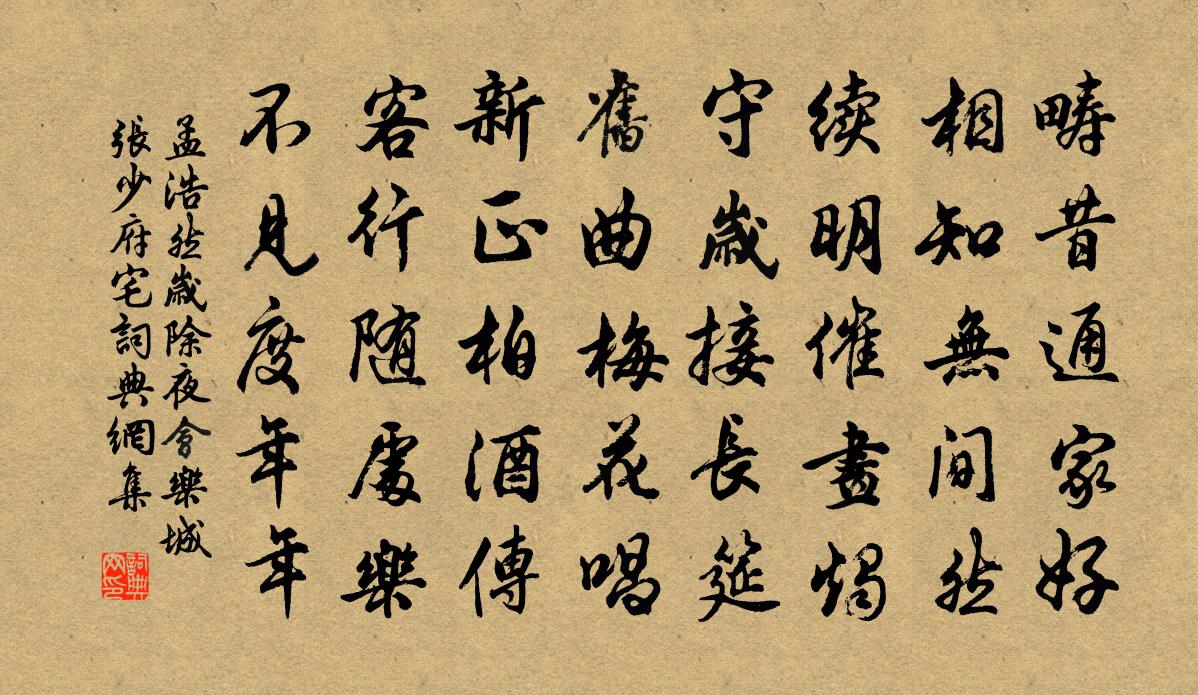 疇昔通家好
相知無间然
续明催畫燭
守歲接長筵
舊曲梅花唱
新正柏酒傳
客行随處樂
不見度年年
孟浩然歲除夜會樂城
張少府宅詞典網集
詞典
网印